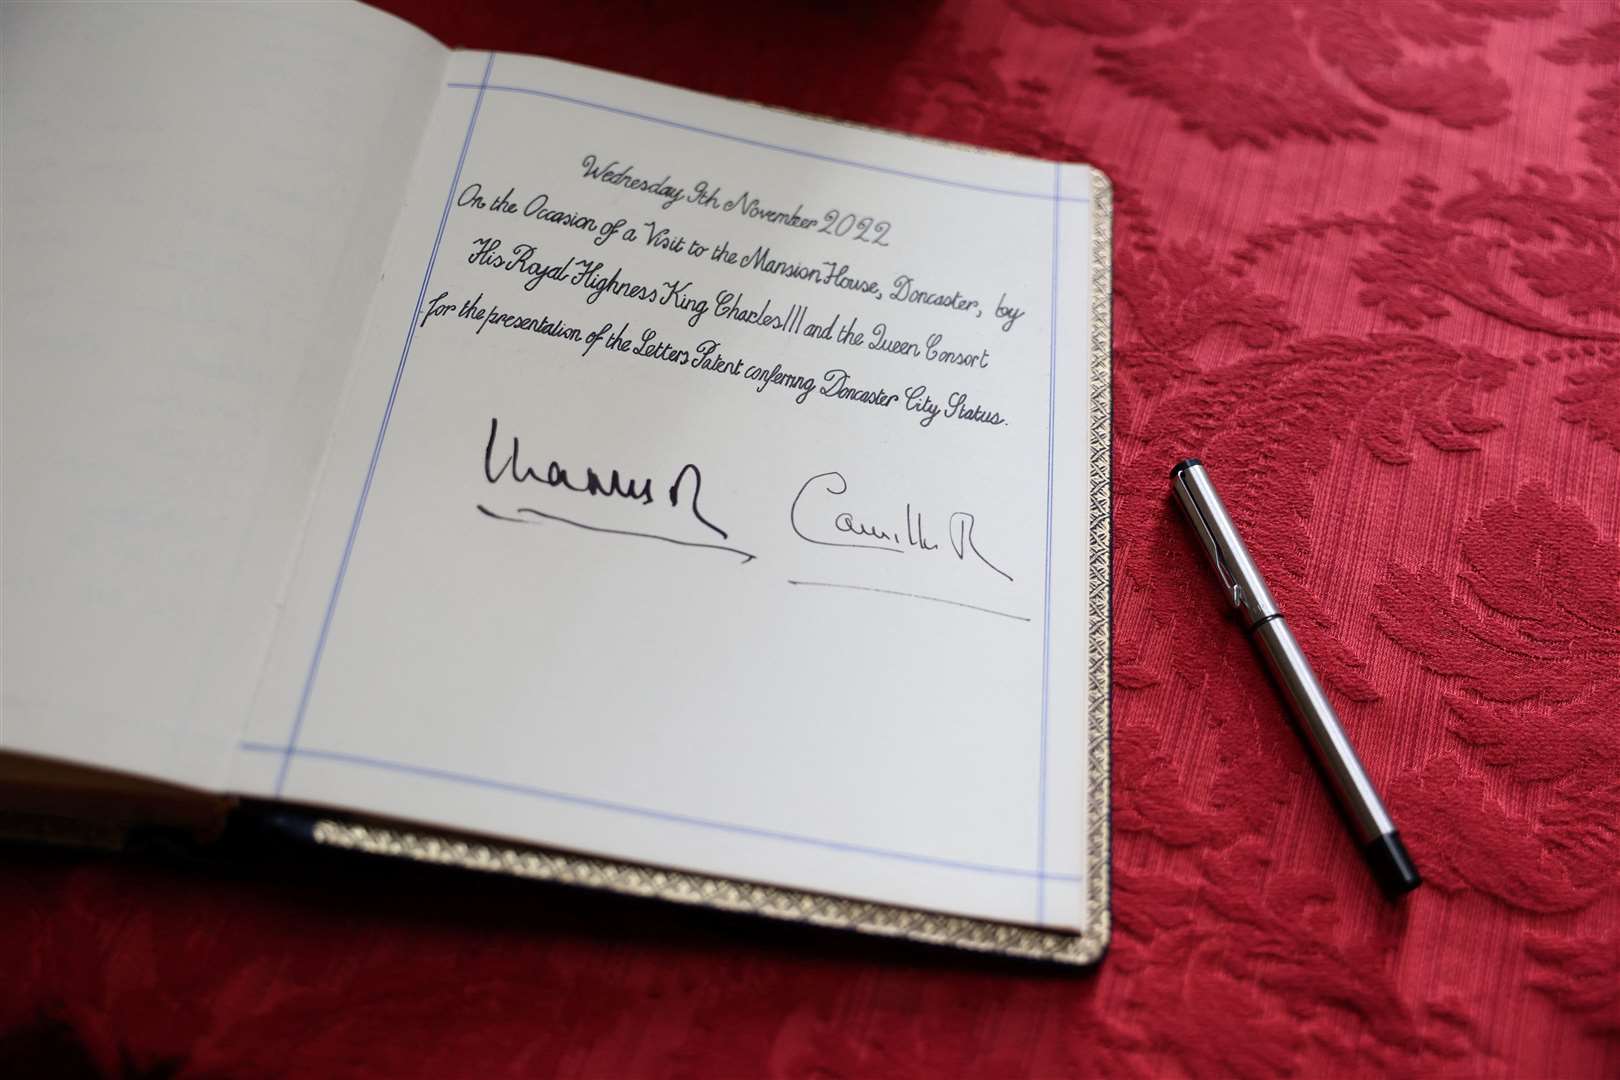 Wednesday 9th November 2022
On the Occasion of a Visit to the Mansion House, Doncaster, by
His Royal Highness King Charles III and the Queen Consort
for the presentation of the Letters Patent conferring Doncaster City Status.
Charles R Camilla R